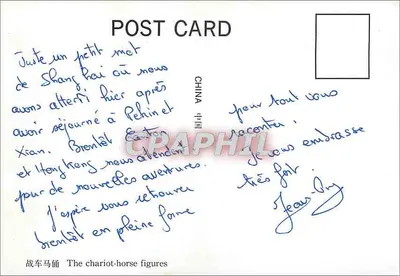 POST CARD
Juste un petit mot
de Shanghai où nous
avons atterri hier après
avoir séjourné à Pékin et
Xian. Bientôt Canton
et Hong Kong nous attendent
pour de nouvelles aventures.
J'espère vous retrouver
bientôt en pleine forme
pour tout vous
raconter.
Je vous embrasse
très fort.
Jean-Guy
CHINA 中国
CPAPHIL
战车马俑 The chariot-horse figures